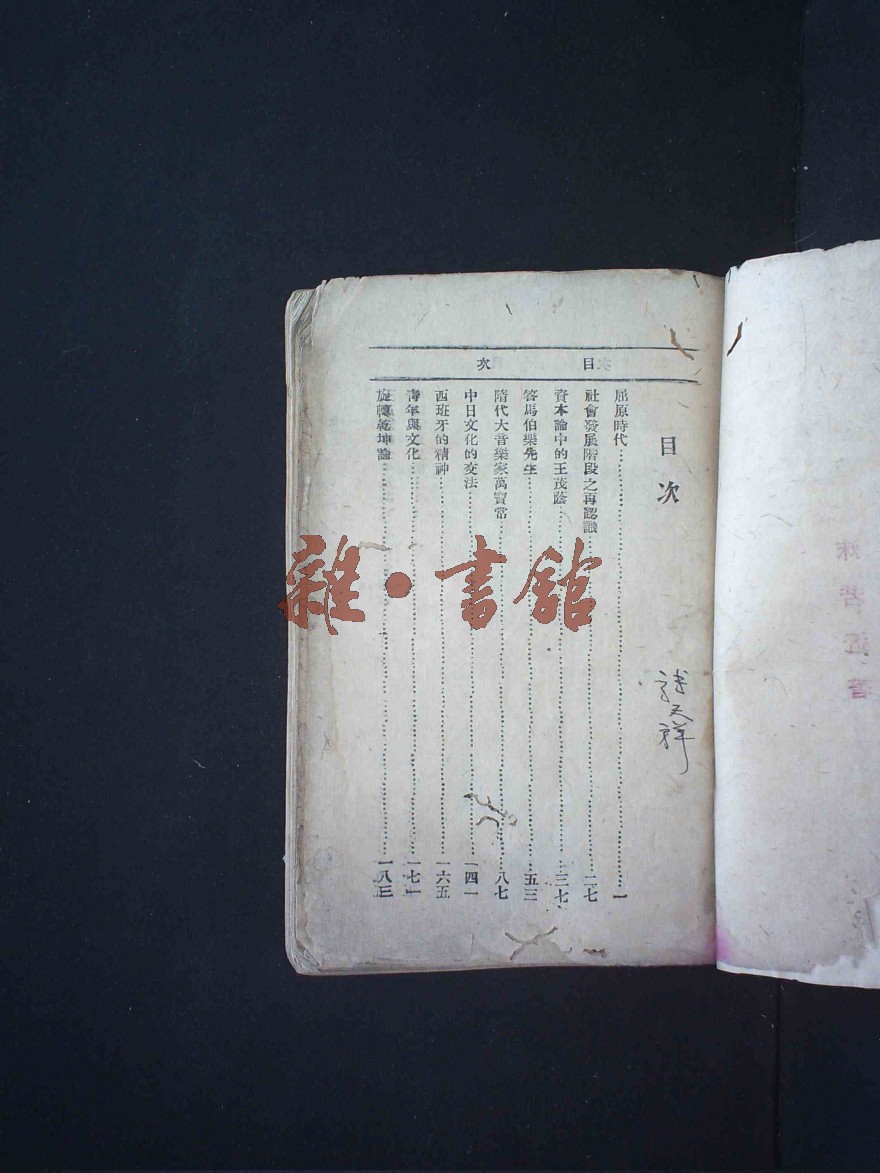 目次
目次
屈原時代……一
社會發展階段之再認識……二七
資本論中的王茂蔭……三七
答馬伯樂先生……五三
隋代大音樂家萬寶常……八七
中日文化的交法……一四一
西班牙的精神……一六五
青年與文化……一七一
旋轉乾坤論……一八三
天祥
雜·書館
沫若近著